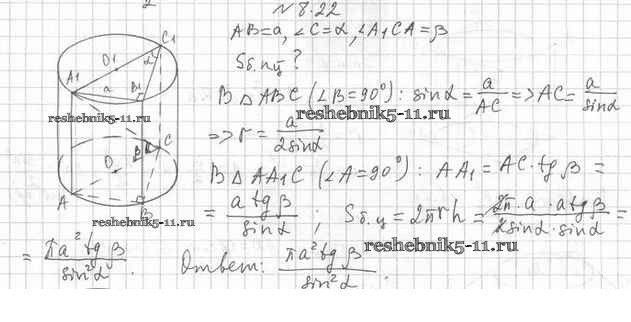 N 8.22
AB=a, ∠C=α, ∠A1CA=β
Sб.пц?
В △ABC (∠B=90°): sinα = a/AC => AC = a/sinα
=> r = a/2sinα
В △AA1C (∠A=90°): AA1 = AC·tgβ =
= a tgβ/sinα; Sб.ц = 2πrh = 2π·a·a tgβ/2sinα·sinα =
= πa² tgβ/sin²α. Ответ: πa² tgβ/sin²α.
C1
O1
α
A1
a
B1
β
C
O
A
B
reshebnik5-11.ru
reshebnik5-11.ru
reshebnik5-11.ru
reshebnik5-11.ru